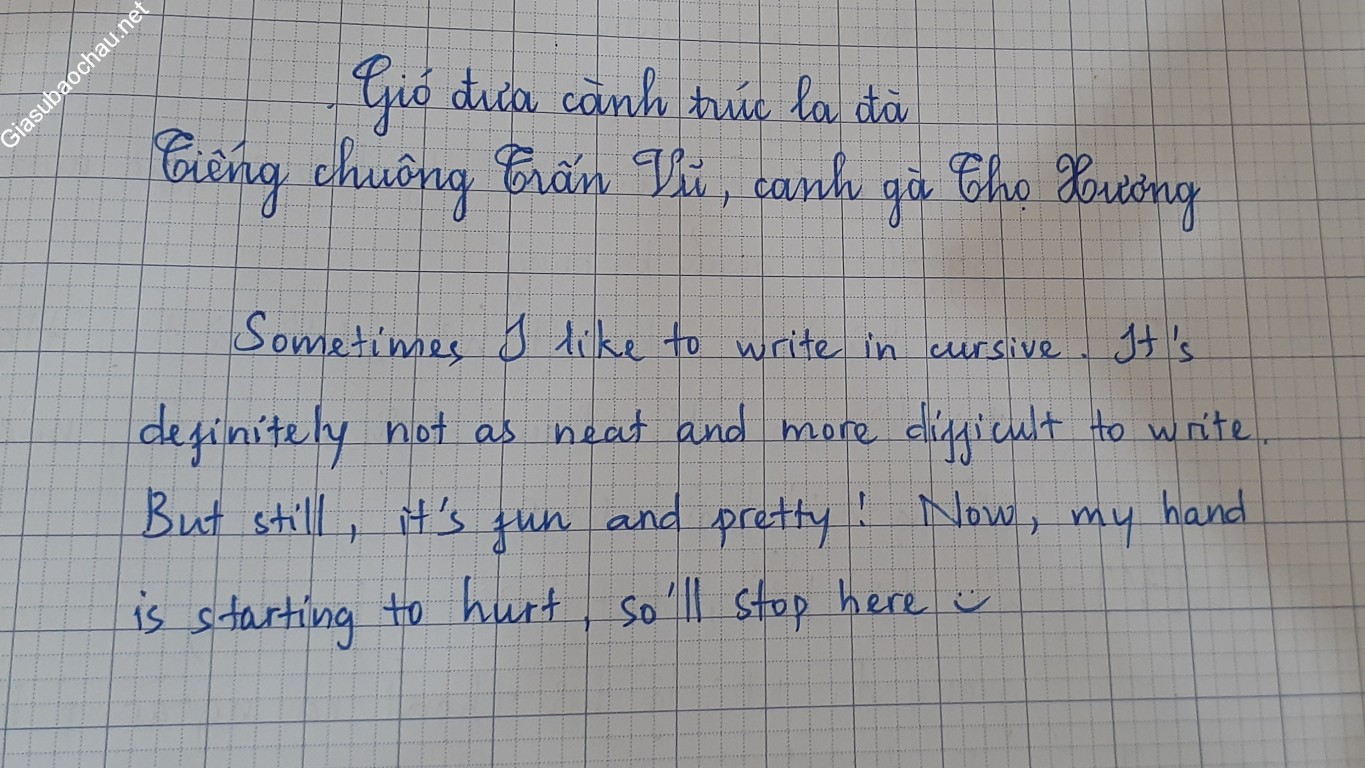 Giasubaochau.net
Gió đưa cành trúc la đà
Tiếng chuông Trấn Vũ, canh gà Thọ Xương
Sometimes I like to write in cursive. It's
definitely not as neat and more difficult to write.
But still, it's fun and pretty! Now, my hand
is starting to hurt, so'll stop here :)